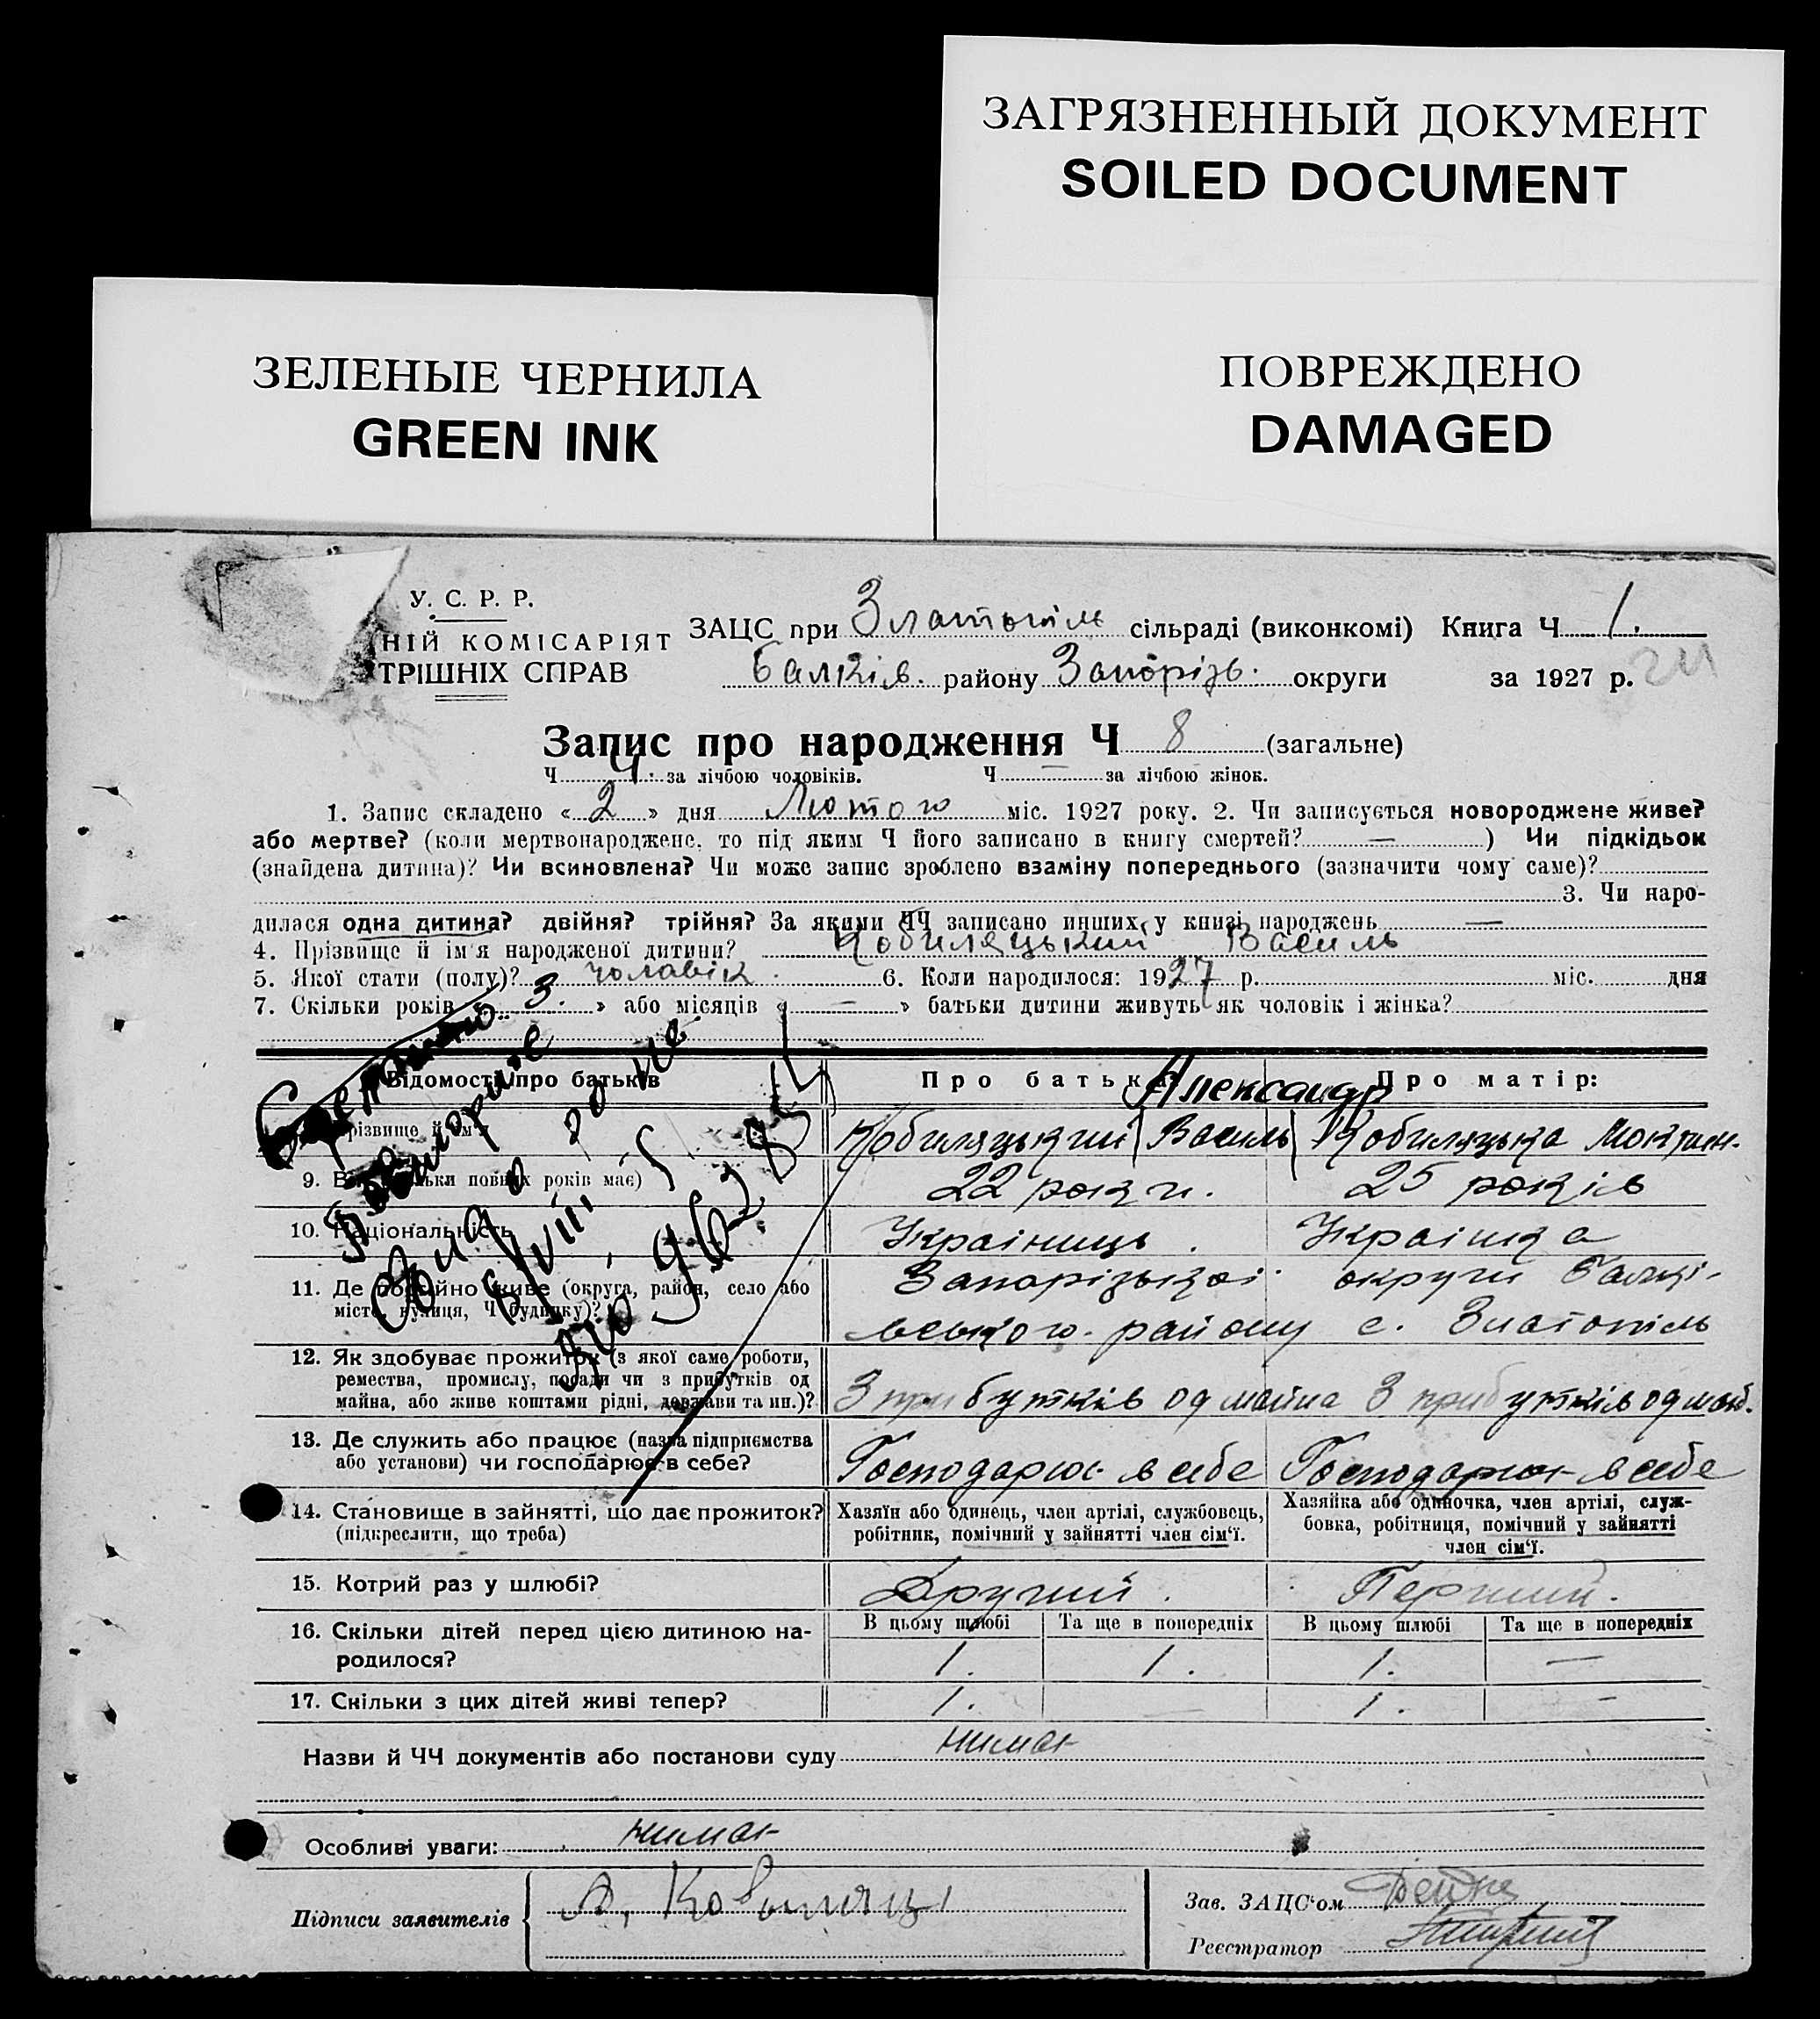 ЗАГРЯЗНЕННЫЙ ДОКУМЕНТ
SOILED DOCUMENT
ЗЕЛЕНЫЕ ЧЕРНИЛА
GREEN INK
ПОВРЕЖДЕНО
DAMAGED
У. С. Р. Р.
НІЙ КОМІСАРІЯТ
ТРІШНІХ СПРАВ
ЗАЦС при Златопіль сільраді (виконкомі) Книга Ч 1.
Балків. району Запорізь. округи за 1927 р.
Запис про народження Ч 8 (загальне)
Ч 4. за лічбою чоловіків. Ч — за лічбою жінок.
1. Запис складено « 2 » дня Лютого міс. 1927 року. 2. Чи записується новороджене живе?
або мертве? (коли мертвонароджене, то під яким Ч його записано в книгу смертей? — ) Чи підкідьок
(знайдена дитина)? Чи всиновлена? Чи може запис зроблено взаміну попереднього (зазначити чому саме)?
3. Чи наро-
дилася одна дитина? двійня? трійня? За якими ЧЧ записано инших у книзі народжень —
4. Прізвище й ім'я народженої дитини? Кобиляцький Василь
5. Якої стати (полу)? чоловік. 6. Коли народилося: 1927 р. міс. дня
7. Скільки років 3. » або місяців « — » батьки дитини живуть як чоловік і жінка?
Відомості про батьків
Про батька: Александр Про матір:
різвище й ім'я Кобиляцький Василь Кобиляцька
9. В льки повних років має) 22 роки. 25 років
10. Національність Українець. Українка
11. Де постійно живе (округа, район, село або
місто, вулиця, Ч будинку)?
Запорізької округи
району с. Златопіль
12. Як здобуває прожиток (з якої саме роботи,
ремества, промислу, посади чи з прибутків од
майна, або живе коштами рідні, держави та ин.)?
З прибутків од майна З прибутків од май.
13. Де служить або працює (назва підприємства
або установи) чи господарює в себе?
Господарює в себе Господарює в себе
14. Становище в зайнятті, що дає прожиток?
(підкреслити, що треба)
Хазяїн або одинець, член артілі, службовець,
робітник, помічний у зайнятті член сім'ї.
Хазяйка або одиночка, член артілі, служ-
бовка, робітниця, помічний у зайнятті
член сім'ї.
15. Котрий раз у шлюбі? Другий. Перший.
16. Скільки дітей перед цією дитиною на-
родилося?
В цьому шлюбі Та ще в попередніх В цьому шлюбі Та ще в попередніх
1. 1. 1. —
17. Скільки з цих дітей живі тепер? 1. — 1. —
Назви й ЧЧ документів або постанови суду нимає
Особливі уваги: нимає
Підписи заявителів
Зав. ЗАЦС'ом
Реєстратор